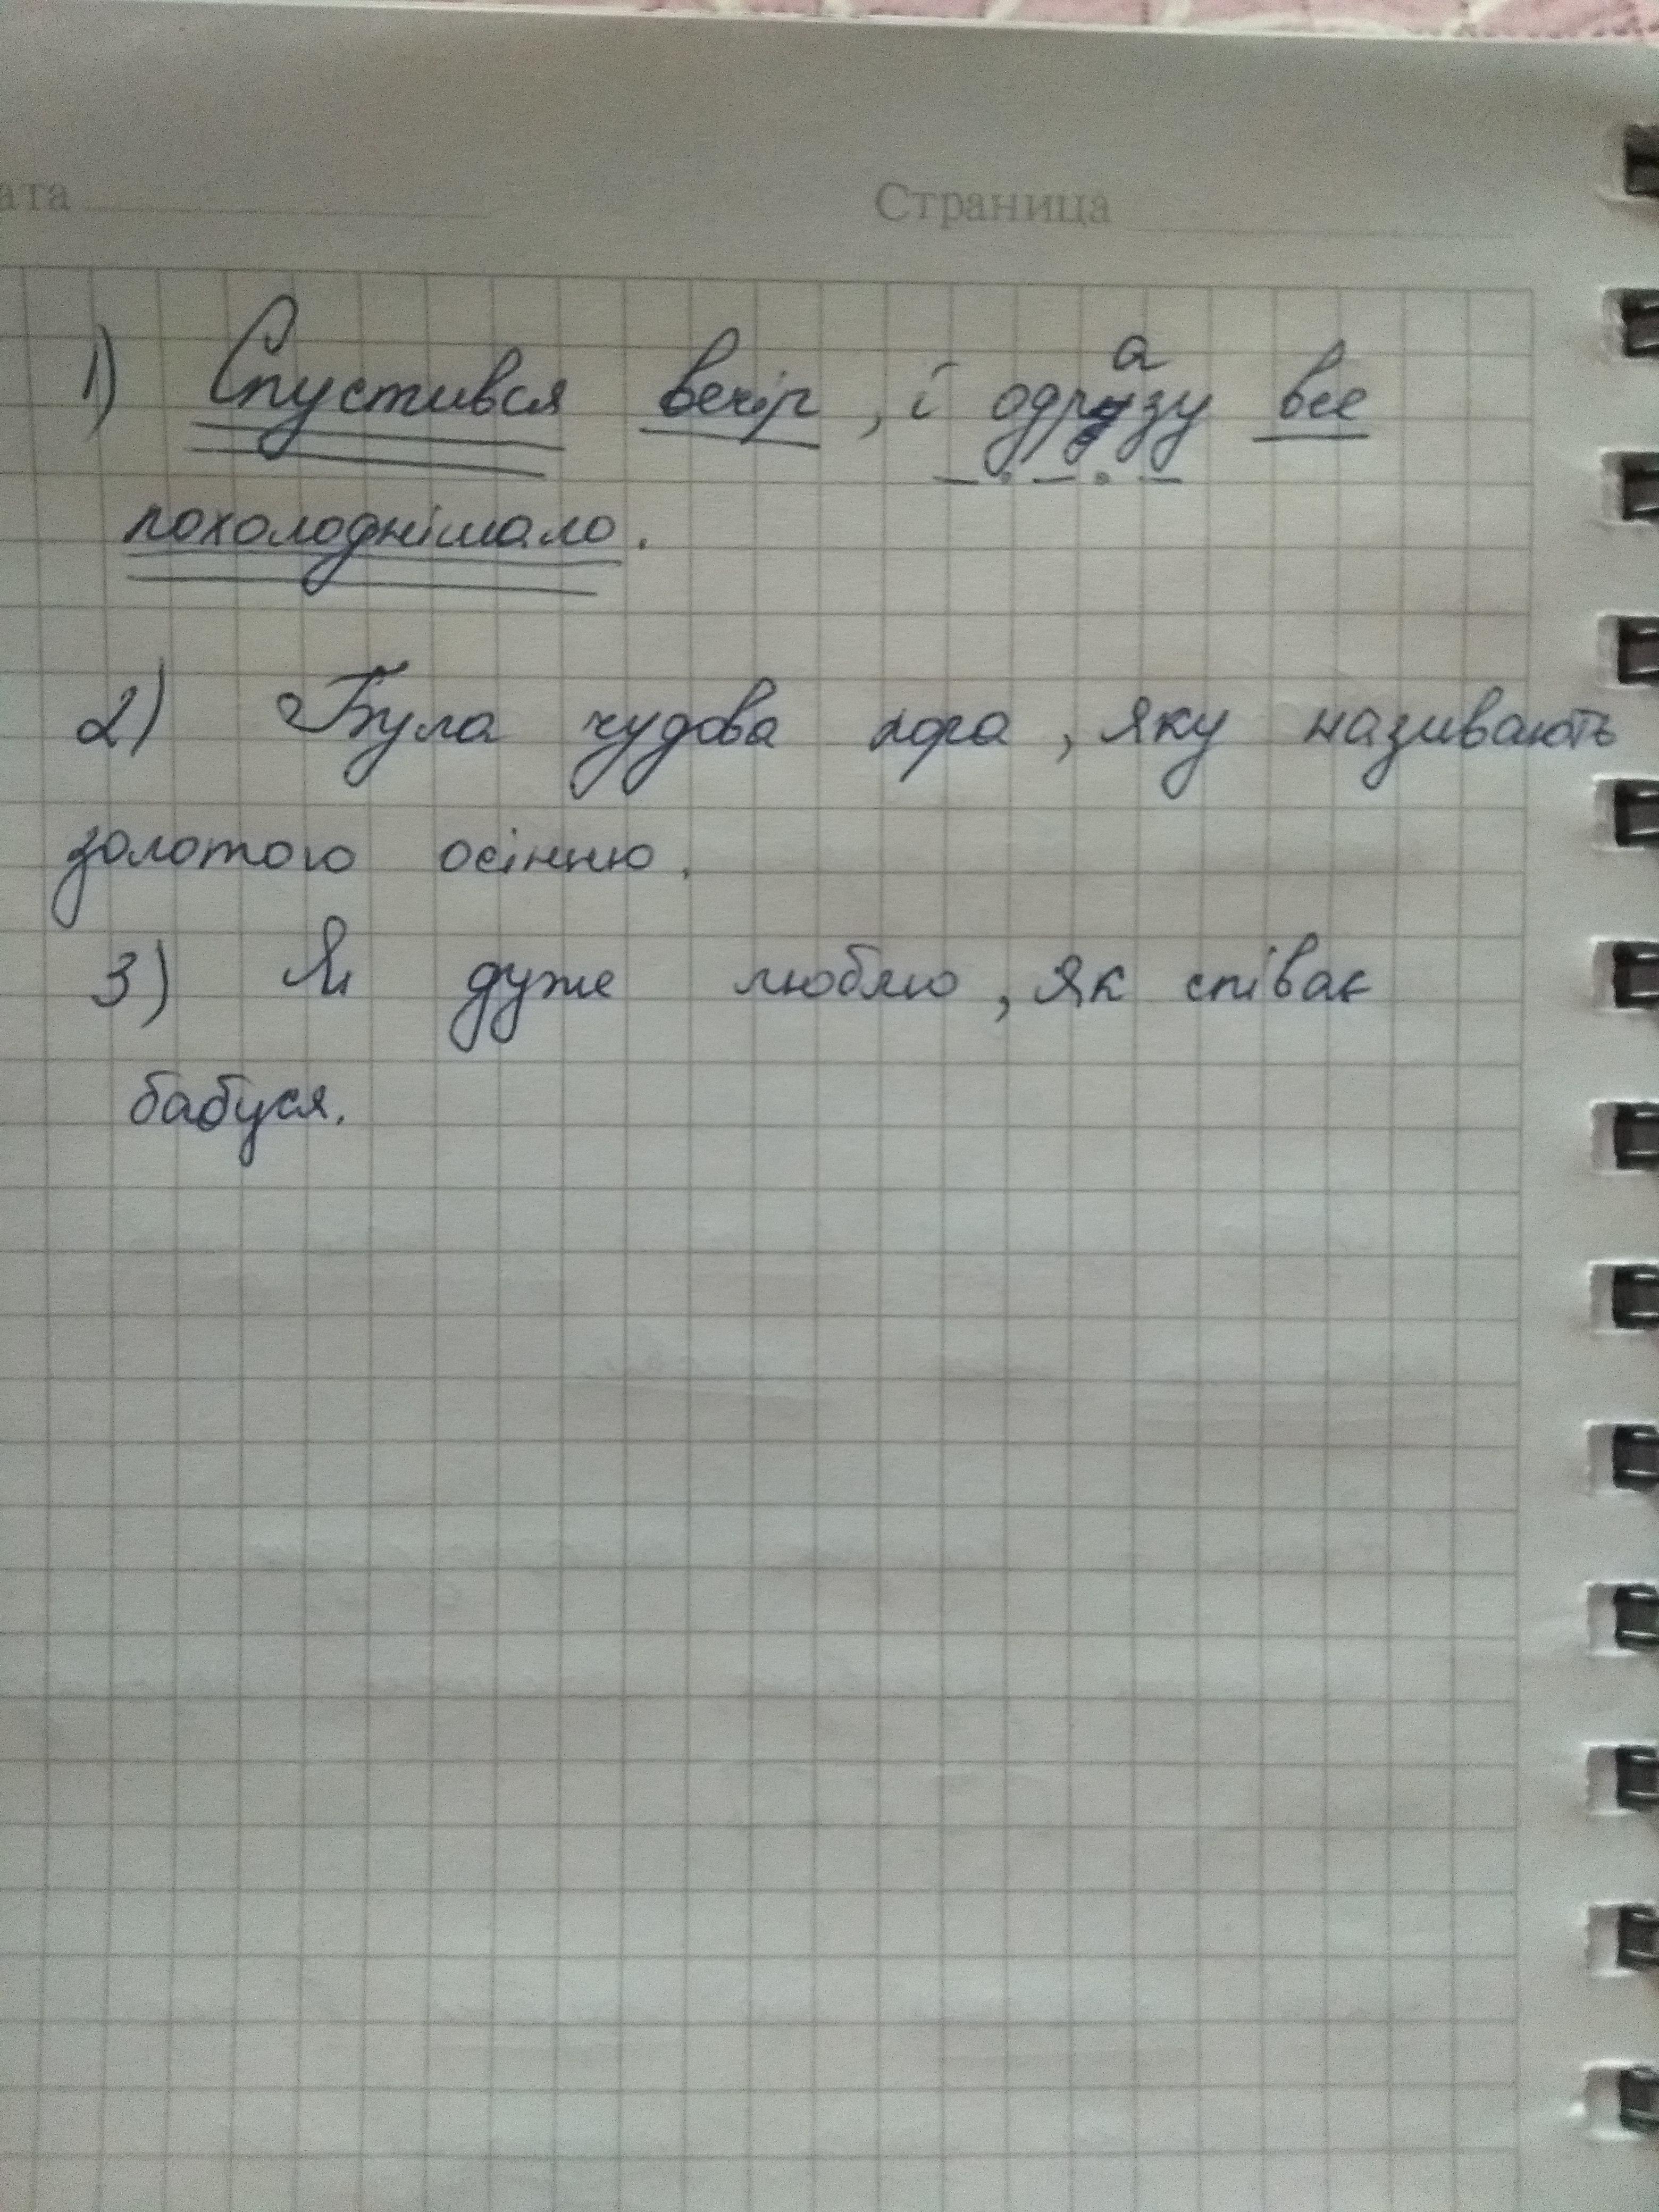 ата Страница
1) Спустився вечір, і одразу все
похолоднішало.
2) Була чудова пора, яку називають
золотою осінню.
3) Я дуже люблю, як співає
бабуся.